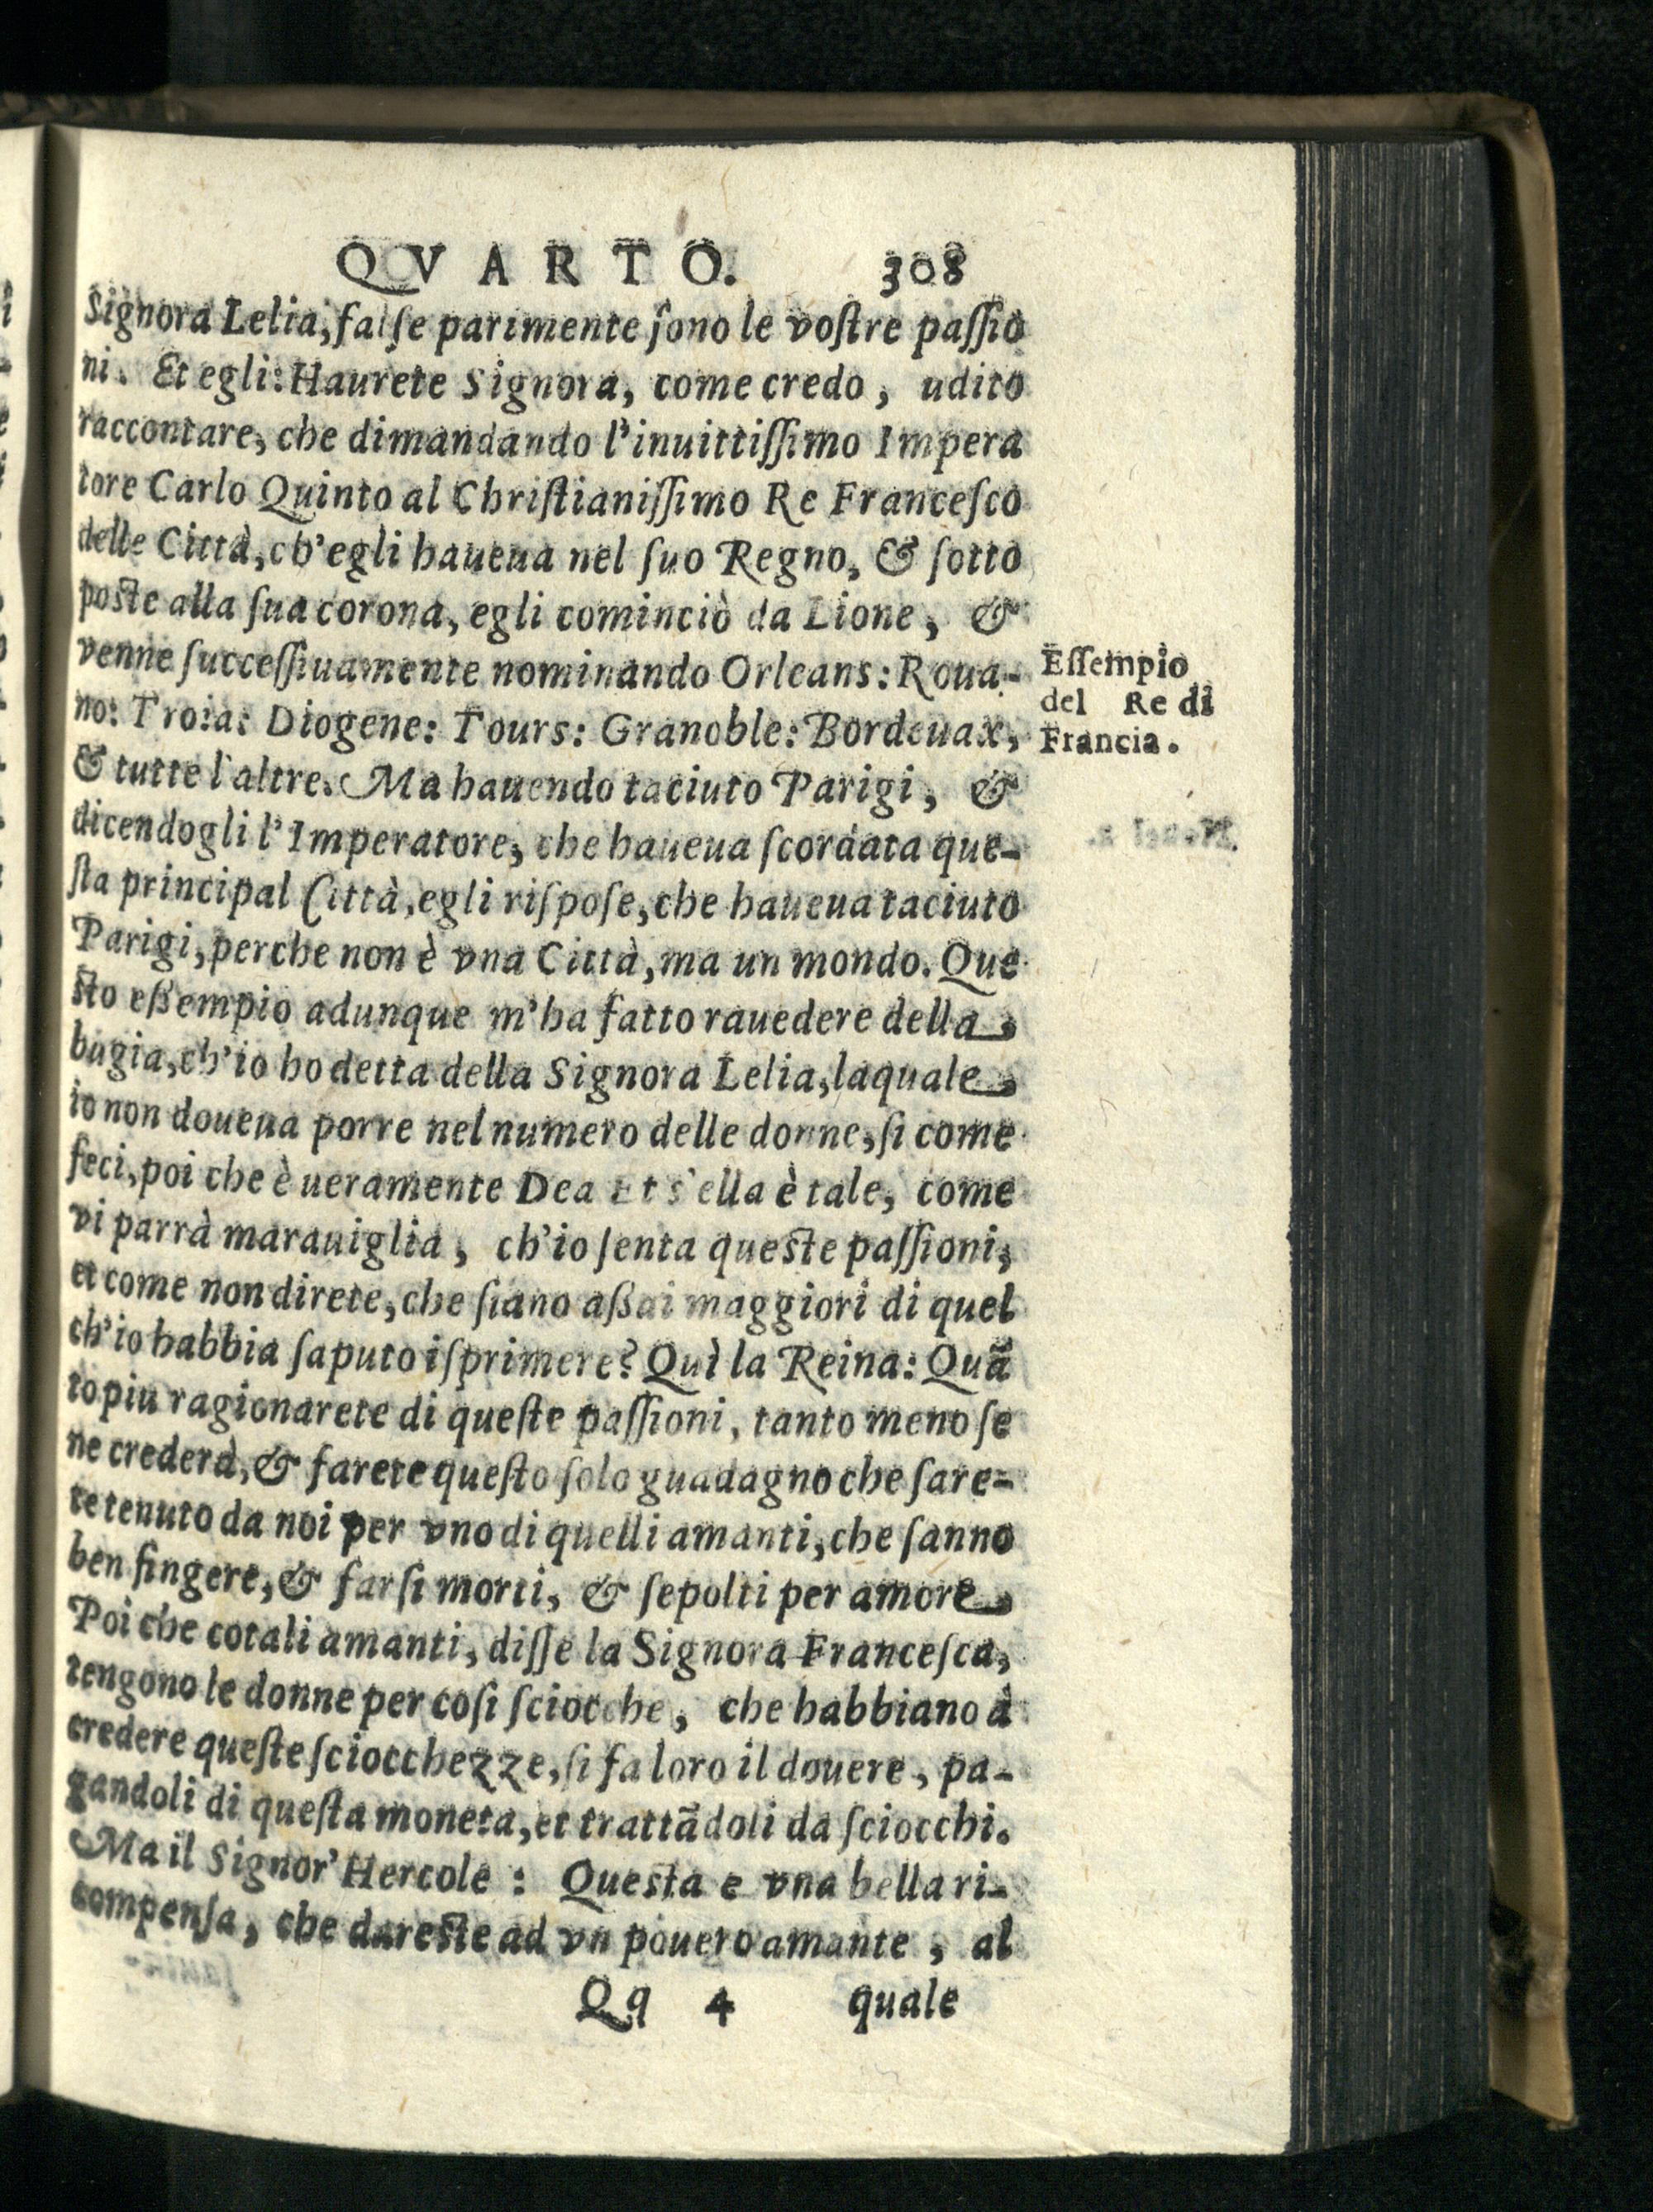 QVARTO. 308
Signora Lelia, falſe parimente ſono le voſtre paſſio
ni. Et egli: Haurete Signora, come credo, udito
raccontare, che dimandando l'inuittiſſimo Impera
tore Carlo Quinto al Chriſtianiſſimo Re Franceſco
delle Città, ch'egli haueua nel ſuo Regno, & ſotto
poſte alla ſua corona, egli cominciò da Lione, &
venne ſucceſſiuamente nominando Orleans: Roua-
no: Troia: Diogene: Tours: Granoble: Bordeuax,
& tutte l'altre. Ma hauendo taciuto Parigi, &
dicendogli l'Imperatore, che haueua ſcordata que-
ſta principal Città, egli riſpoſe, che haueua taciuto
Parigi, perche non è vna Città, ma un mondo. Que
ſto eßempio adunque m'ha fatto rauedere della
bugia, ch'io ho detta della Signora Lelia, laquale
io non doueua porre nel numero delle donne, ſi come
feci, poi che è ueramente Dea Et s'ella è tale, come
vi parrà marauiglia, ch'io ſenta queſte paſſioni,
et come non direte, che ſiano aßai maggiori di quel
ch'io habbia ſaputo iſprimere? Quì la Reina: Quã
to piu ragionarete di queſte paſſioni, tanto meno ſe
ne crederà, & farete queſto ſolo guadagno che ſare-
te tenuto da noi per vno di quelli amanti, che ſanno
ben fingere, & farſi morti, & ſepolti per amore
Poi che cotali amanti, diſſe la Signora Franceſca,
tengono le donne per coſi ſciocche, che habbiano à
credere queſte ſciocchezze, ſi fa loro il douere, pa-
gandoli di queſta moneta, et trattãdoli da ſciocchi.
Ma il Signor' Hercole: Queſta e vna bella ri-
compenſa, che dareſte ad vn pouero amante, al
Qq 4 quale
Eſſempio
del Re di
Francia.